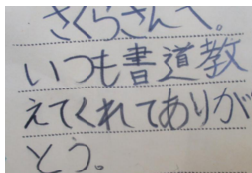 さくらさんへ。
いつも書道教
えてくれてありが
とう。